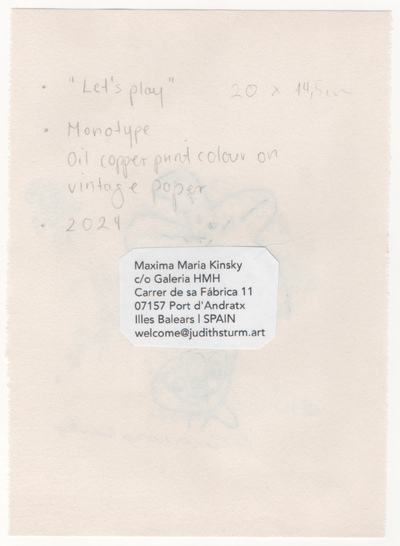 • "Let's play" 20 x 14,5cm
• Monotype
Oil copper print colour on
vintage paper
• 2024
Maxima Maria Kinsky
c/o Galeria HMH
Carrer de sa Fábrica 11
07157 Port d'Andratx
Illes Balears | SPAIN
welcome@judithsturm.art